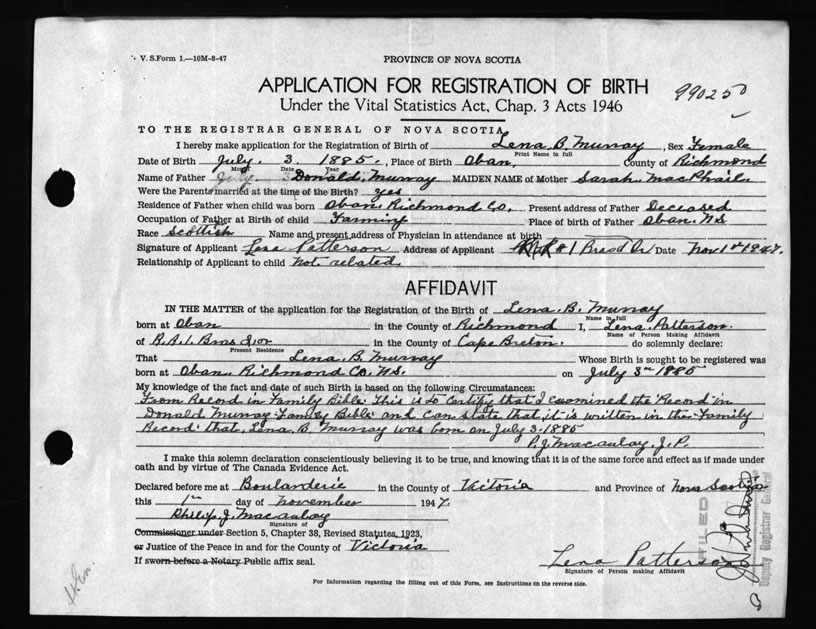 V. S. Form 1.—10M-8-47
PROVINCE OF NOVA SCOTIA
APPLICATION FOR REGISTRATION OF BIRTH
99025
Under the Vital Statistics Act, Chap. 3 Acts 1946
TO THE REGISTRAR GENERAL OF NOVA SCOTIA
I hereby make application for the Registration of Birth of Lena. B. Murray, Sex Female
Print Name in full
Date of Birth July. 3. 1885., Place of Birth Oban, County of Richmond
Month Date Year
Name of Father Donald. Murray MAIDEN NAME of Mother Sarah. MacPhail.
Were the Parents married at the time of the Birth? yes
Residence of Father when child was born Oban. Richmond Co, Present address of Father Deceased
Occupation of Father at Birth of child Farming Place of birth of Father Oban. N.S
Race Scottish Name and present address of Physician in attendance at birth
Signature of Applicant Lena Patterson Address of Applicant R.R #1 Bras d'Or Date Nov 1st 1947.
Relationship of Applicant to child not related.
AFFIDAVIT
IN THE MATTER of the application for the Registration of the Birth of Lena. B. Murray
Name in full
born at Oban in the County of Richmond I, Lena. Patterson.
Name of Person Making Affidavit
of R.R.1. Bras d'or in the County of Cape Breton. do solemnly declare:
Present Residence
That Lena. B. Murray Whose Birth is sought to be registered was
born at Oban. Richmond Co. N.S. on July 3rd 1885
My knowledge of the fact and date of such Birth is based on the following Circumstances:
From Record in Family Bible. This is to Certify that I examined the Record in
Donald Murray Family Bible and can state that it is written in the Family
Record that, Lena. B. Murray was born on July 3. 1885
P. J. Macaulay. J. P.
I make this solemn declaration conscientiously believing it to be true, and knowing that it is of the same force and effect as if made under
oath and by virtue of The Canada Evidence Act.
Declared before me at Boularderie in the County of Victoria and Province of Nova Scotia
this 1st day of November 1947.
Philip J. Macaulay
Signature of
Commissioner under Section 5, Chapter 38, Revised Statutes, 1923,
or Justice of the Peace in and for the County of Victoria
If sworn before a Notary Public affix seal.
Lena Patterson
Signature of Person making Affidavit
For Information regarding the filling out of this Form, see Instructions on the reverse side.
FILED
Deputy Registrar General